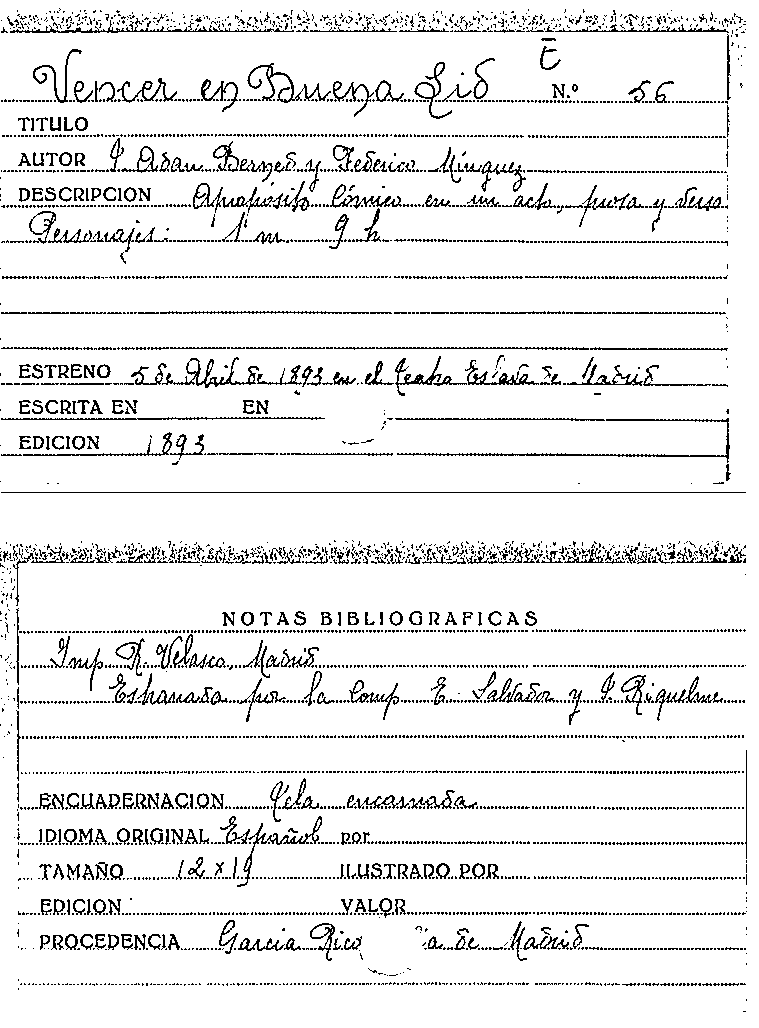 E
Vencer en Buena Lid N.º 56
TITULO
AUTOR J. Adan Berned y Federico Mínguez
DESCRIPCION Apropósito Cómico en un acto, prosa y verso
Personajes: 1 m 9 h
ESTRENO 5 de Abril de 1893 en el Teatro Eslava de Madrid
ESCRITA EN EN
EDICION 1893
NOTAS BIBLIOGRAFICAS
Imp R. Velasco, Madrid
Estrenada por la Comp E. Salvador y J. Riquelme
ENCUADERNACION Tela encarnada
IDIOMA ORIGINAL Español por
TAMAÑO 12 x 19 ILUSTRADO POR
EDICION VALOR
PROCEDENCIA Garcia Rico de Madrid